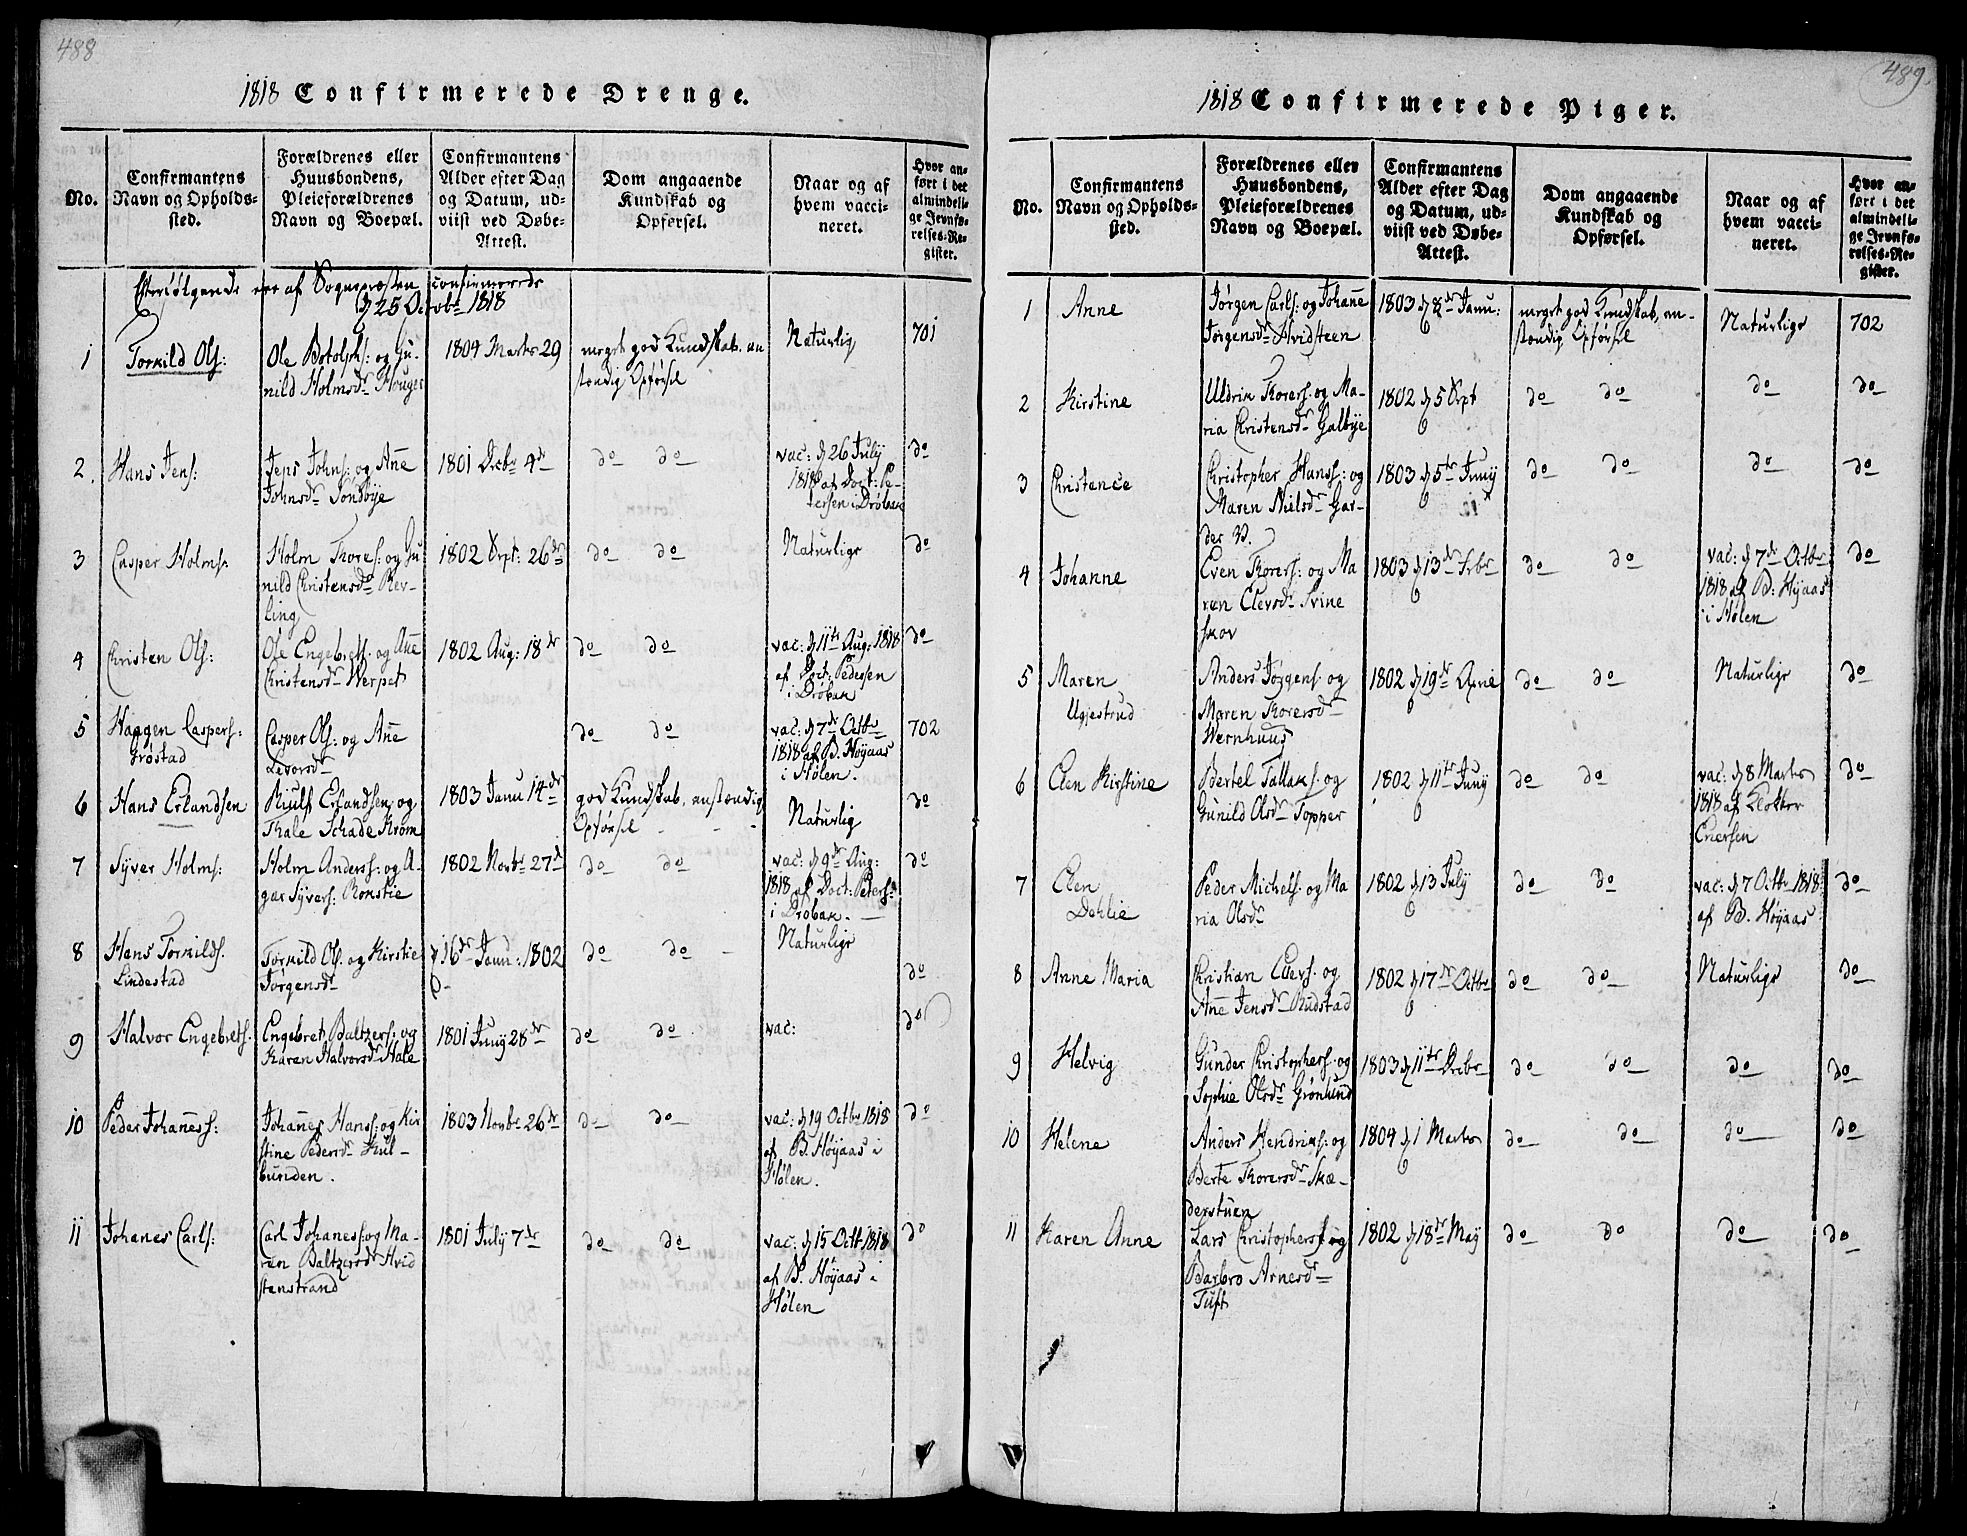 488
1818 Confirmerede Drenge.
No.
Confirmantens
Navn og Opholds-
sted.
Forældrenes eller
Huusbondens,
Pleieforældrenes
Navn og Boepæl.
Confirmantens
Alder efter Dag
og Datum, ud-
viist ved Døbe-
Attest.
Dom angaaende
Kundskab og
Opførsel.
Naar og af
hvem vacci-
neret.
Hvor an-
ført i det
almindeli-
ge Jevnfø-
relses-Re-
gister.
Efterfølgende ere af Sognepræsten confirmerede
d 25 Octobr 1818
1
Torkild Ols:
Ole Botolphs: og Gu-
nild Holmsdr Houger
1804 Marts 29
meget god Kundskab. an
stændig Opførsel
Naturlig
701
2.
Hans Jens:
Jens Johns: og Ane
Johnsdr Sondbye
1801 Decbr 4de
do do
vac: d 26 July
1818 af Doct: Pe-
tersen i Drøbak
do
3
Casper Holms:
Holm Thores: og Gu
nild Christensdr Rev-
ling
1802 Sept: 26de
do do
Naturlige
do
4
Christen Ols:
Ole Engebrets: og Ane
Christensdr Werpet
1802 Aug: 18de
do do
vac: d 11te Aug: 1818
af Doct: Pedersen
i Drøbak
do
5
Haagen Caspers:
Grøstad
Casper Ols: og Ane
Levorsdr
do do
vac: d 7de Octbr
1818 af B. Høyaas
i Hølen.
702
6
Hans Erlandsen
Riulf Erlandsen og
Thale Schade Krom
1803 Janu 14de
god Kundskab, anstændig
Opførsel
Naturlig
do
7
Syver Holms:
Holm Anders: og A-
gar Syvers: Ronstie
1802 Novbr 27d
do do
vac: d 9de Aug:
1818 af Doct: Peders:
i Drøbak.
do
8
Hans Torkilds.
Lindestad
Torkild Ols. og Kirstie
Jørgensdr
d 16de Janu: 1802
do do
Naturlige
do
9
Halvor Engebrets.
Engebret Baltzers: og
Karen Halvorsdr Hale
1801 Juny 28de
do do
vac:
do
10
Peder Johaness:
Johanes Hans: og Kir
stine Pedersdr Hul-
bunden.
1803 Novbr 26de
do do
vac: d 19 Octbr 1818
af B. Høyaas i
Hølen.
do
11
Johanes Carls:
Carl Johaness: og Ma-
ren Baltzersdr Hvid
stenstrand
1801 July 7de
do do
vac: d 15 Octbr 1818
af B. Høyaas i
Hølen
do
489.
1818 Confirmerede Piger.
No.
Confirmantens
Navn og Opholds-
sted.
Forældrenes eller
Huusbondens,
Pleieforældrenes
Navn og Boepæl.
Confirmantens
Alder efter Dag
og Datum, ud-
viist ved Døbe-
Attest.
Dom angaaende
Kundskab og
Opførsel.
Naar og af
hvem vacci-
neret.
Hvor an-
ført i det
almindeli-
ge Jevnfø-
relses-Re-
gister.
1
Anne
Jørgen Carls: og Johane
Jørgensdr Hvidsteen
1803 d 8de Janu:
meget god Kundskab, an-
stændig Opførsel
Naturlige
702
2
Kirstine
Uldrik Thorers: og Ma-
ria Christensdr Galbye
1802 d 5 Sept
do do
do
do
3
Christence
Christopher Hans: og
Maren Nielsdr Gar-
der V.
1803 d 5te Juny
do do
do
do
4
Johanne
Even Thorers: og Ma
ren Elevsdr Svine
skov
1803 d 13de Febr
do do
vac: d 7de Octbr
1818 af B: Høyaas
i Hølen
do
5
Maren
Ugjestrud
Anders Jørgens: og
Maren Thorersdr
Wernhuus
1802 d 19de
do do
Naturlige
do
6
Elen Kirstine
Bertel Tallaks: og
Gunild Olsdr Topper
1802 d 11te Juny
do do
vac: d 8 Marts
1818 af Klokker
Eversen
do
7
Elen
Dehlie
Peder Michels: og Ma
ria Olsdr
1802 d 13 July
do do
vac: d 7 Octbr 1818
af B. Høyaas
do
8
Anne Maria
Christian Evers: og
Ane Jensdr Rudstad
1802 d 17de Octbr
do do
Naturlige
do
9
Helvig
Gunder Christophers: og
Sophie Olsdr Grønlund
1803 d 11te Decbr
do do
do
do
10
Helene
Anders Hendriks: og
Berte Thorersdr Skæ-
derstuen
1804 d 1 Marts
do do
do
do
11
Karen Anne
Lars Christophers: og
Barbro Arnesdr
Tuft
1802 d 18de May
do do
do
do